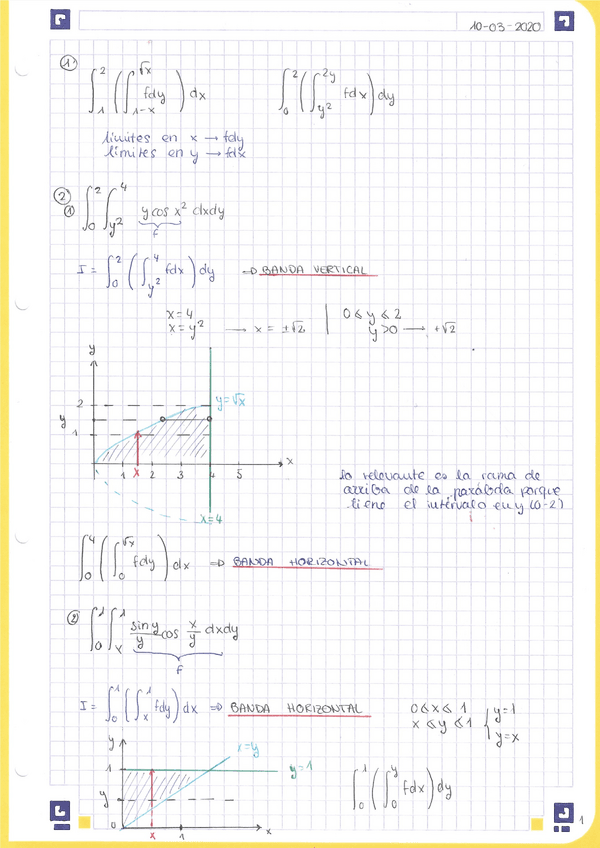 10-03-2020
1
∫₁² (∫₁₋ₓ^√x fdy) dx ∫₀² (∫_y²^2y fdx) dy
límites en x → fdy
límites en y → fdx
2
1 ∫₀² ∫_y²^4 y cos x² dxdy
f
I = ∫₀² (∫_y²^4 fdx) dy ⇒ BANDA VERTICAL
x = 4
x = y² → x = ±√2 | 0 ≤ y ≤ 2
y > 0 → +√2
y
2 y = √x
y
1
x
1 x 2 3 4 5
x = 4
lo relevante es la rama de
arriba de la parábola porque
tiene el intervalo en y (0-2)
∫₀⁴ (∫₀^√x fdy) dx ⇒ BANDA HORIZONTAL
2 ∫₀¹ ∫ₓ¹ sin y/y cos x/y dxdy
f
I = ∫₀¹ (∫ₓ¹ fdy) dx ⇒ BANDA HORIZONTAL
0 ≤ x ≤ 1
x ≤ y ≤ 1 { y = 1
y = x
y x = y
1 y = 1
y
0 x 1 x
∫₀¹ (∫₀^y fdx) dy
1